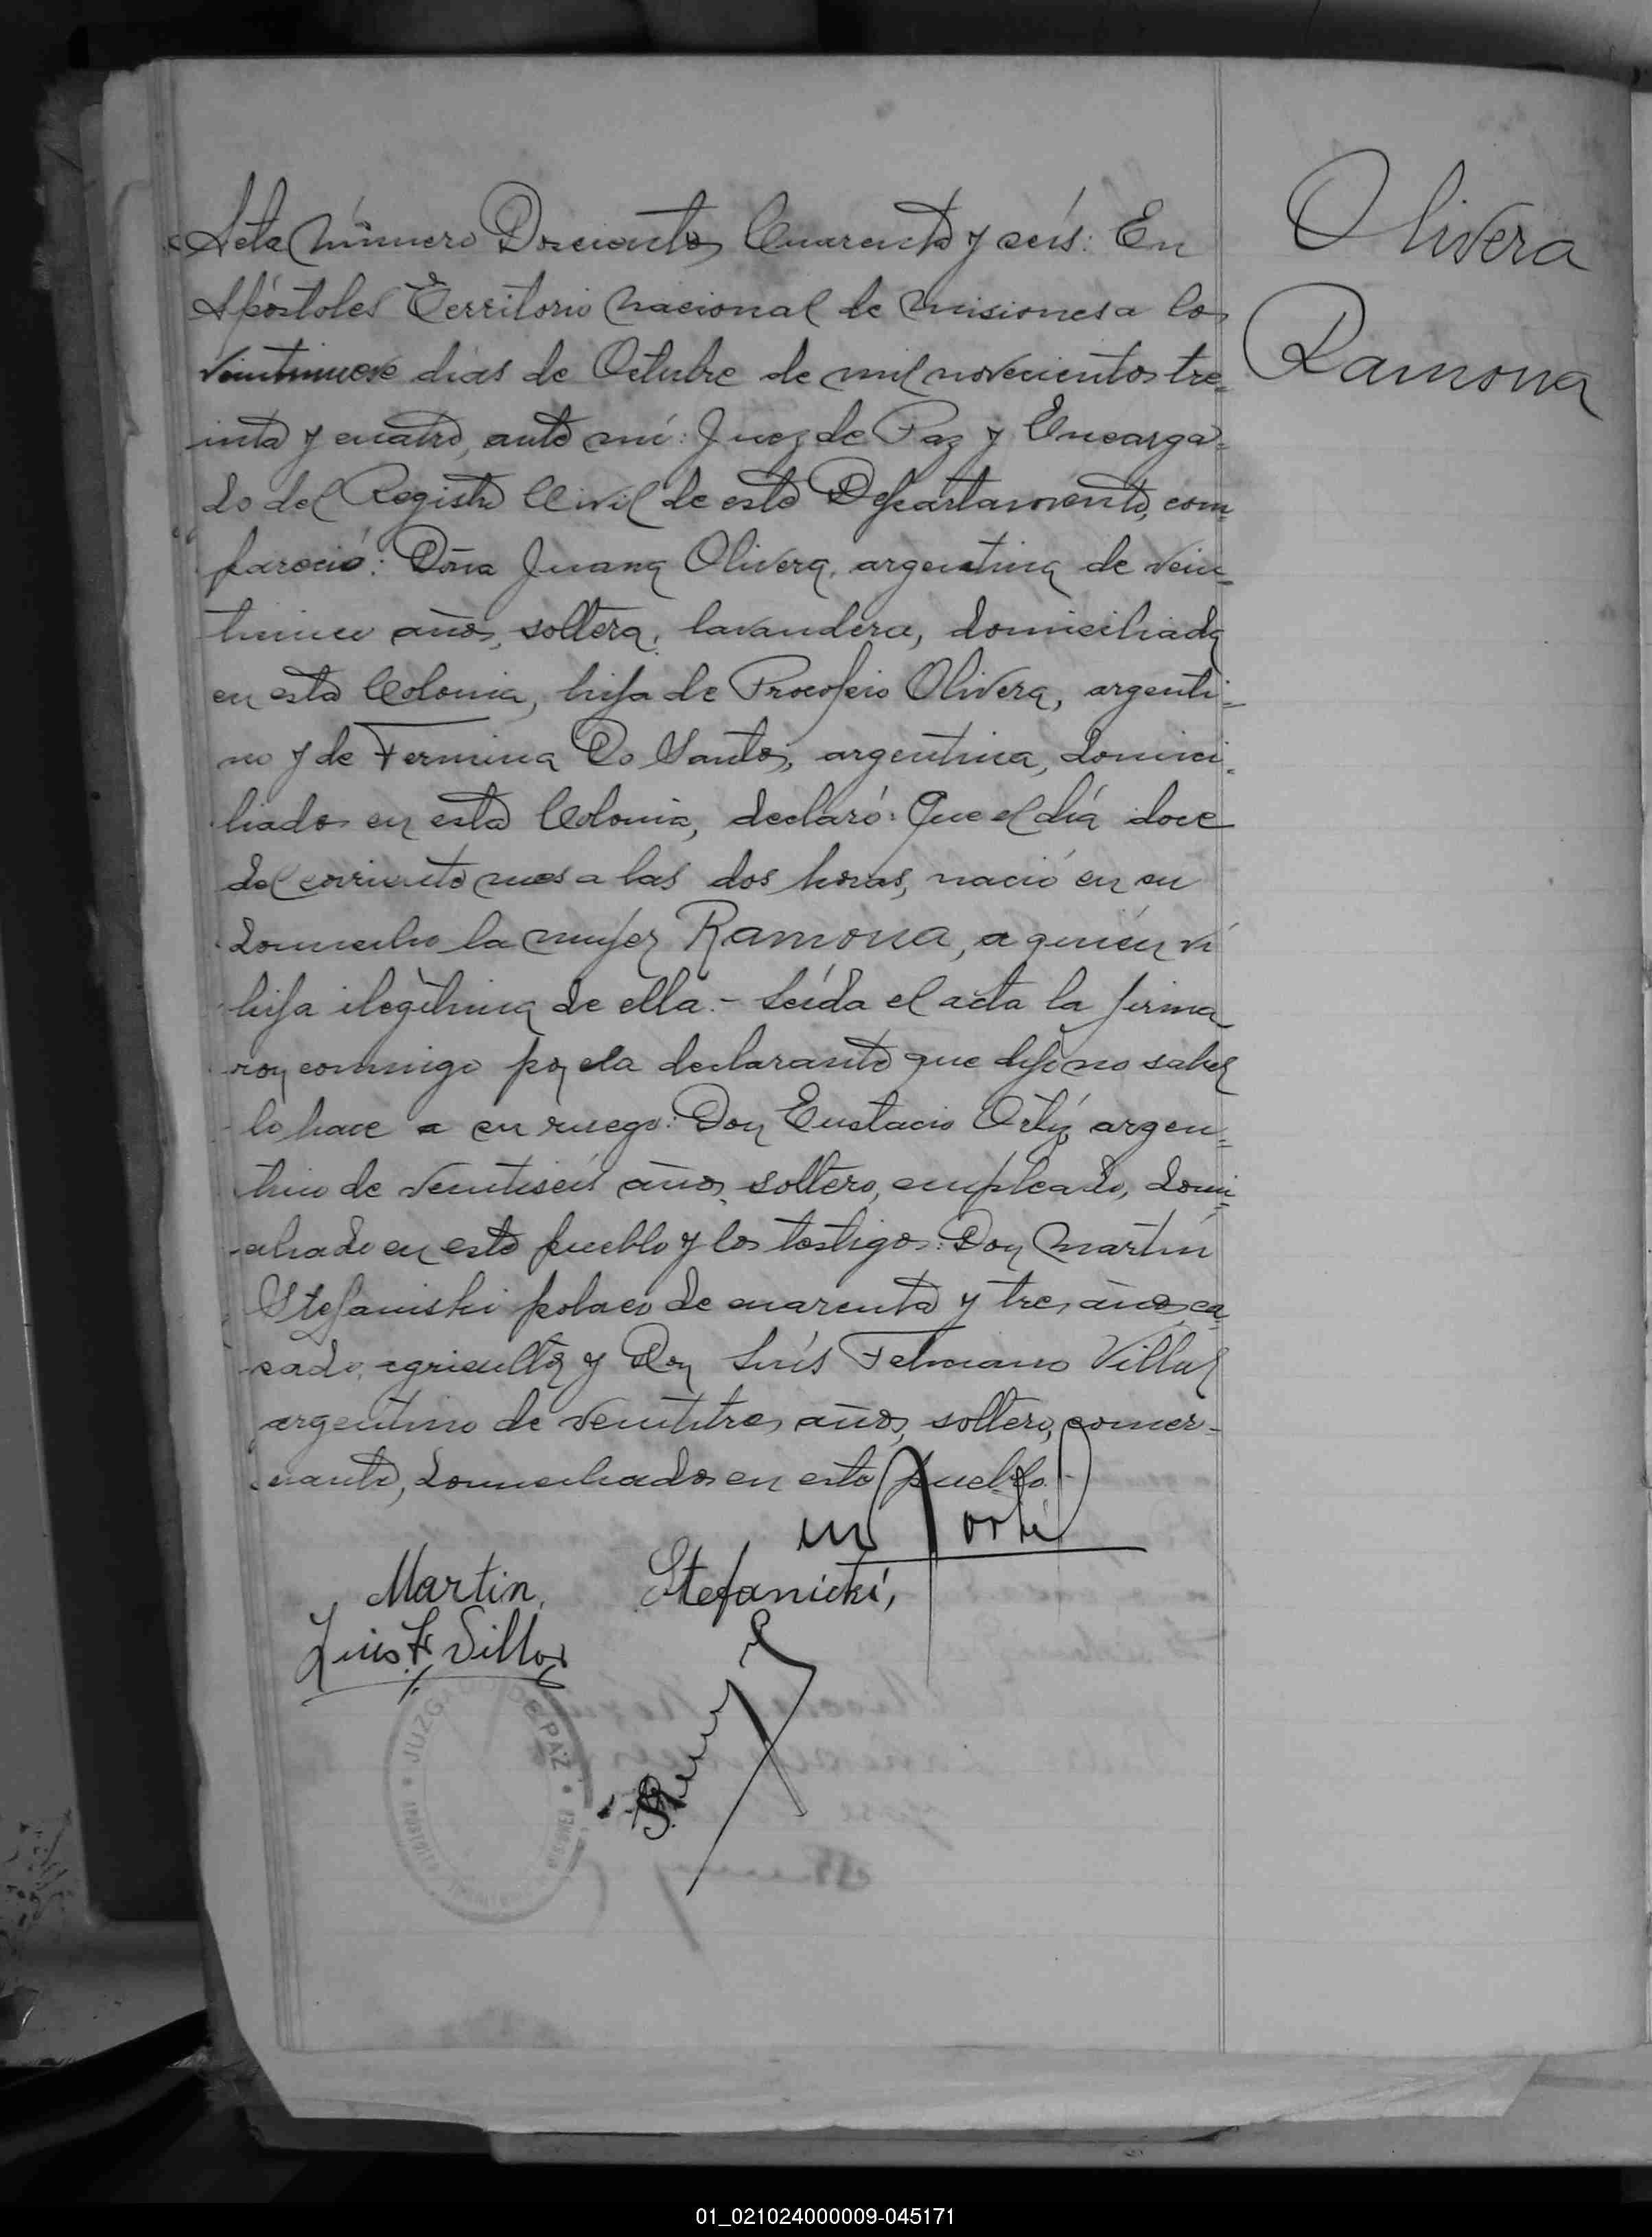 Olivera
Ramona
Acta Número Doscientos Cuarenta y seis: En
Apóstoles Territorio Nacional de Misiones a los
veintinueve días de Octubre de mil novecientos tre=
inta y cuatro, ante mí: Juez de Paz y Encarga=
do del Registro Civil de este Departamento, com=
pareció: Doña Juana Olivera, argentina de vein=
años, soltera, lavandera, domiciliada
en esta Colonia, hija de Olivera, argenti=
no y de Fermina Do Santos, argentina, domici=
liados en esta Colonia, declaró: Que el día doce
del corriente mes a las dos horas, nació en su
domicilio la mujer Ramona, a quién ví
hija ilegítima de ella.- Leída el acta la firma
ron conmigo por la declarante que dijo no saber
lo hace a su ruego: Don Eustacio Ortíz argen=
tino de veintiseis años, soltero, empleado, domi=
ciliado en este pueblo y los testigos: Don Martín
Stefaniski polaco de cuarenta y tres años, ca=
sado, agricultor y Don Luís Feliciano Villal
argentino de veintitres años, soltero, comer-
ciante, domiciliados en este pueblo.-
Martin, Stefanicki,
Luis F. Villa
JUZGADO DE PAZ
01_021024000009-045171